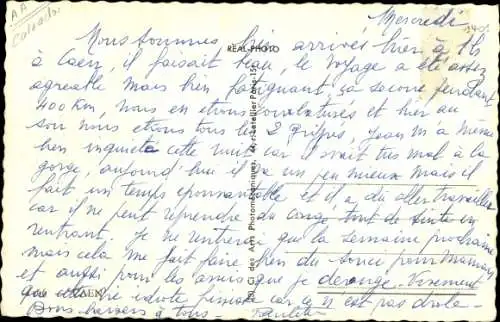 A A
Calvados
Mercredi
REAL-PHOTO
Nous sommes bien arrivés hier à 11h
à Caen, il faisait beau, le voyage a été assez
agréable mais bien fatiguant ça secoue pendant
400 Km, nous en etions courbaturés et hier au
soir nous etions tous les 2 grippés, Jean m'a même
bien inquiété cette nuit car il avait très mal à la
gorge, aujourd'hui il va un peu mieux mais il
fait un temps epouvantable et il a dû aller travailler
car il ne peut reprendre du congé tout de suite en
rentrant. Je ne rentrerai que la semaine prochaine
mais cela me fait faire bien du souci pour maman
et aussi pour les amis que je derange. Vivement
que cette vie idiote finisse car ce n'est pas drôle.
CAEN
Bons baisers à tous - Paulette
Cl. des Arts Photomécaniques, 44, r. Letellier Paris-15e